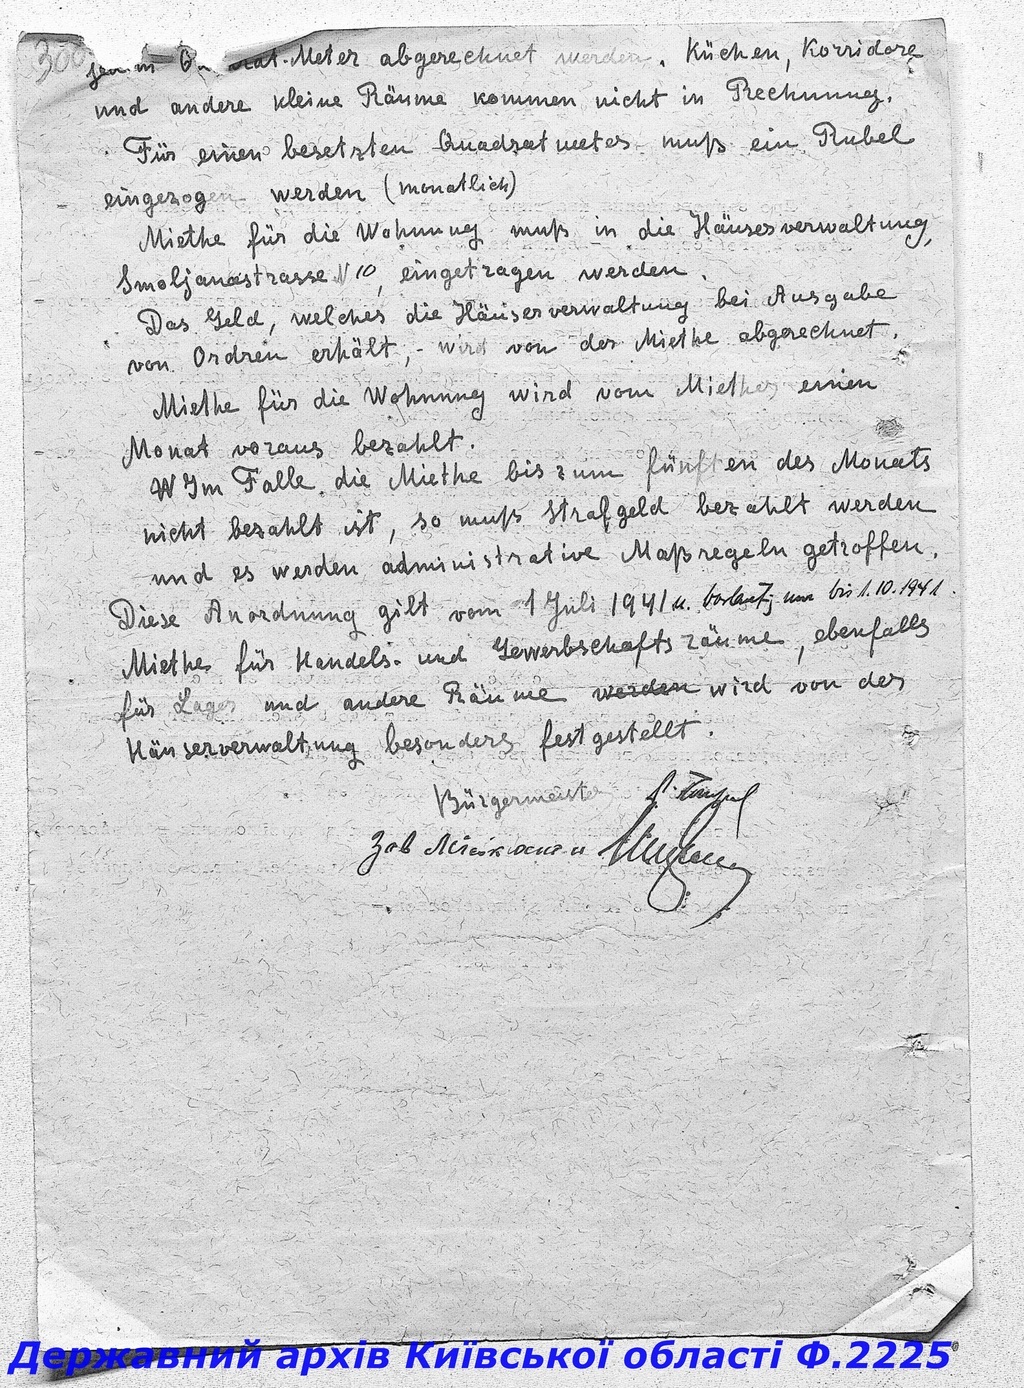 300
jedem Quadrat-Meter abgerechnet werden. Küchen, Korridore
und andere kleine Räume kommen nicht in Rechnung.
Für einen besetzten Quadratmeter muß ein Rubel
eingezogen werden (monatlich)
Miethe für die Wohnung muß in die Häuserverwaltung,
Smoljanastrasse N 10, eingetragen werden.
Das Geld, welches die Häuserverwaltung bei Ausgabe
von Ordren erhält, - wird von der Miethe abgerechnet.
Miethe für die Wohnung wird vom Miether einen
Monat voraus bezahlt.
Im Falle die Miethe bis zum fünften des Monats
nicht bezahlt ist, so muß Strafgeld bezahlt werden
und es werden administrative Maßregeln getroffen.
Diese Anordnung gilt vom 1 Juli 1941 u. nur bis 1.10.1941.
Miethe für Handels- und Gewerbschaftsräume, ebenfalls
für Lager und andere Räume werden wird von der
Häuserverwaltung besonders festgestellt.
Bürgermeister
Зав
Державний архів Київської області Ф.2225